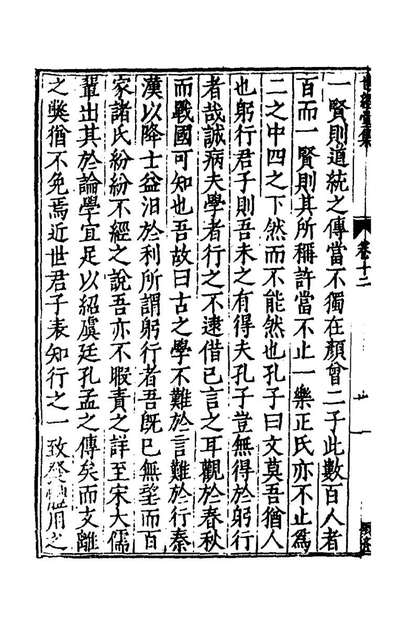 世經堂集 卷十二
一賢則道統之傳當不獨在顏曾二子此數百人者
百而一賢則其所稱許當不止一樂正氏亦不止為
二之中四之下然而不能然也孔子曰文莫吾猶人
也躬行君子則吾未之有得夫孔子豈無得於躬行
者哉誠病夫學者行之不逮借已言之耳觀於春秋
而戰國可知也吾故曰古之學不難於言難於行秦
漢以降士益汨於利所謂躬行者吾旣已無望而百
家諸氏紛紛不經之說吾亦不暇責之詳至宋大儒
輩出其於論學宜足以紹虞廷孔孟之傳矣而支離
之獘猶不免焉近世君子表知行之一致發體用之